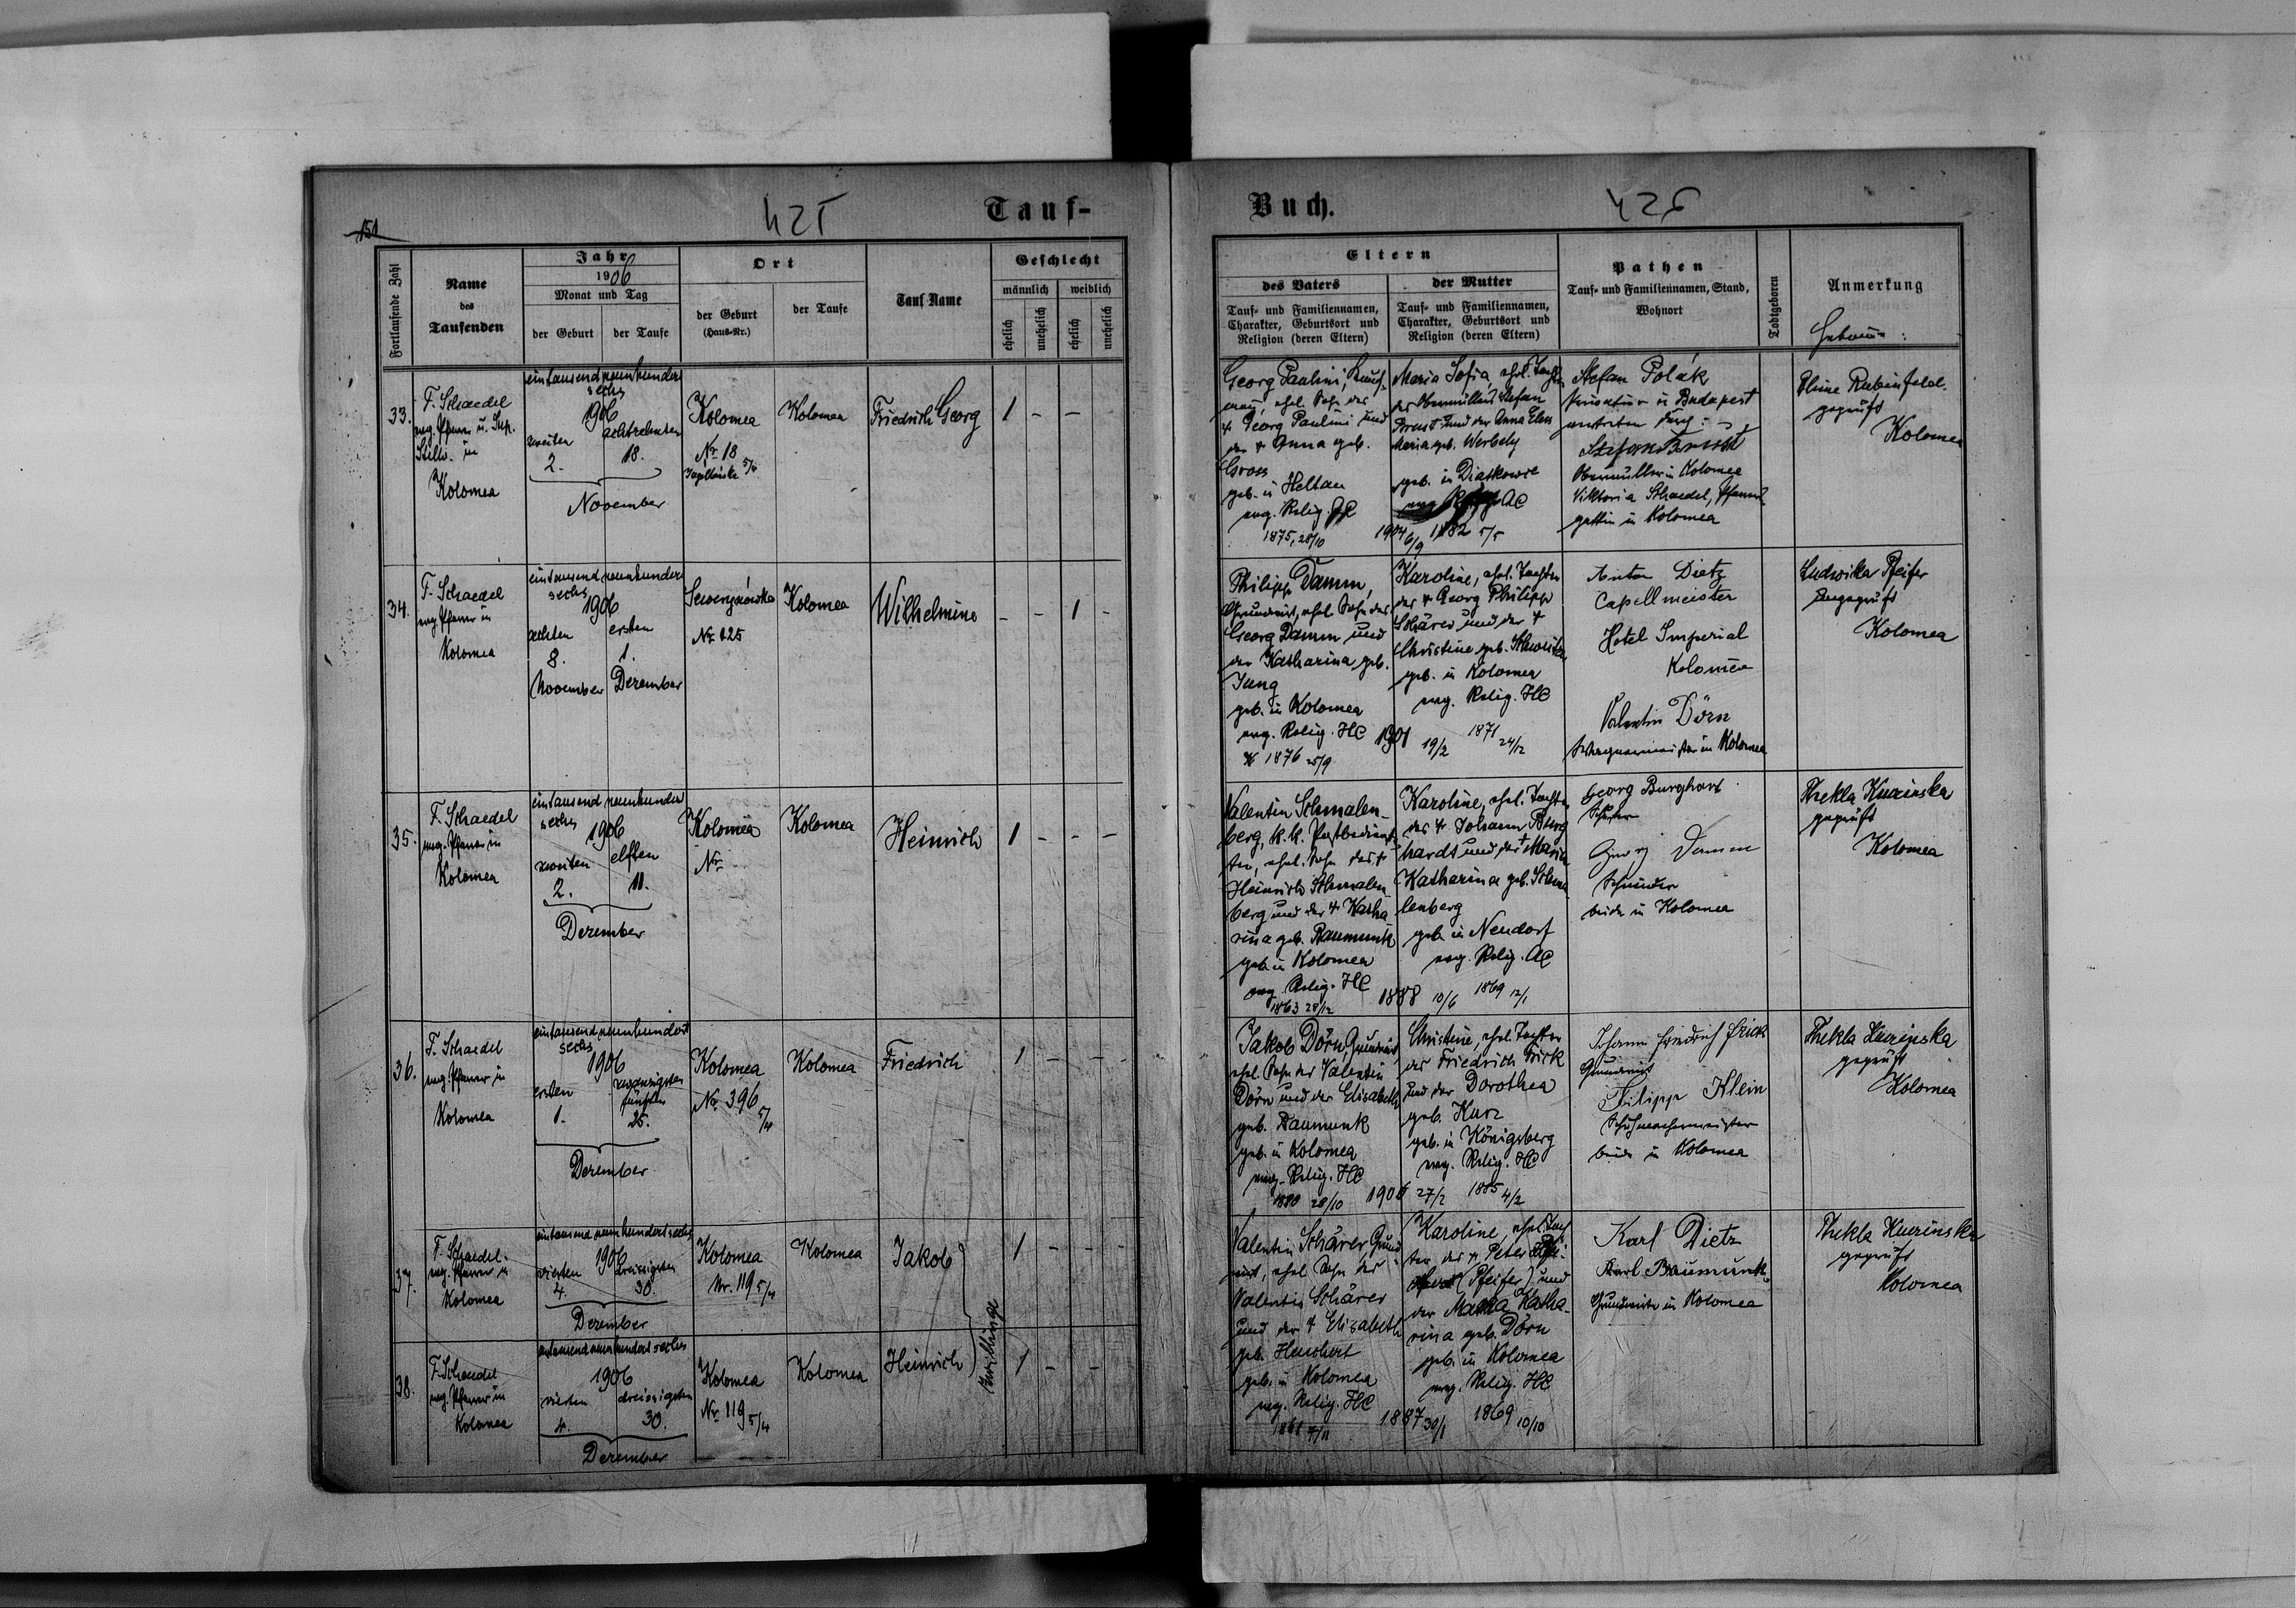 151
425
Tauf-
Fortlaufende Zahl
Name
des
Taufenden
Jahr
1906
Monat und Tag
der Geburt
der Taufe
Ort
der Geburt
(Haus-Nr.)
der Taufe
Tauf-Name
Geschlecht
männlich
weiblich
ehelich
unehelich
ehelich
unehelich
33.
F. Schaedel
evg. Pfarrer u. Sup.
Stellv. in
Kolomea
eintausend neunhundert
sechs
1906
zweiten
achtzehnten
2.
18.
November
Kolomea
Nr. 18
5/4
Kolomea
Friedrich Georg
1 - -
34.
F. Schaedel
evg. Pfarrer in
Kolomea
eintausend neunhundert
sechs
1906
achten
ersten
8.
1.
November
Dezember
Seweryнówka
Nr. 125
Kolomea
Wilhelmine
- - 1 -
35.
F. Schaedel
evg. Pfarrer in
Kolomea
eintausend neunhundert
sechs
1906
zweiten
elften
2.
11.
Dezember
Kolomea
Nr.
Kolomea
Heinrich
1 - - -
36.
F. Schaedel
evg. Pfarrer in
Kolomea
eintausend neunhundert
sechs
1906
ersten
zwanzigsten
fünften
1.
25.
Dezember
Kolomea
Nr. 396
5/4
Kolomea
Friedrich
1 - - -
37.
F. Schaedel
evg. Pfarrer in
Kolomea
eintausend neunhundert sechs
1906
vierten
dreissigsten
4.
30.
Dezember
Kolomea
Nr. 119 5/4
Kolomea
Jakob
1 - - -
Zwillinge
38.
F. Schaedel
evg. Pfarrer in
Kolomea
eintausend neunhundert sechs
1906
vierten
dreissigsten
4.
30.
Dezember
Kolomea
Nr. 119 5/4
Kolomea
Heinrich
1 - -
Buch.
426
Eltern
des Vaters
Tauf- und Familiennamen,
Charakter, Geburtsort und
Religion (deren Eltern)
der Mutter
Tauf- und Familiennamen,
Charakter, Geburtsort und
Religion (deren Eltern)
Pathen
Tauf- und Familiennamen, Stand,
Wohnort
Todtgeboren
Anmerkung
Georg Paulini,
ehel. Sohn des
† Georg Paulini und
der † Anna geb.
Gross
geb. in Heltau
evg. Relig. AC
1875, 28/10
1904 6/9
Maria Sofia, ehel. Tochter
des Obermüllers Stefan
und der Anna Elen
Maria geb. Werbely
geb. in Diatkowce
AC
1882 5/5
Stefan Polák
in Budapest
vertreten durch:
Obermüller in Kolomea
Viktoria Schaedel, Pfarrers
gattin in Kolomea
Rubinfeld
geprüft
Kolomea
Philipp Damm,
Grundwirt, ehel. Sohn des
Georg Damm und
der Katharina geb.
Jung
geb. in Kolomea
evg. Relig. HC
1876 25/9
1901 19/2
Karoline, ehel. Tochter
des † Georg Philipp
Schärer und der †
Christine geb.
geb. in Kolomea
evg. Relig. HC
1871 24/12
Anton Dietz
Capellmeister
Hotel Imperial
Kolomea
Valentin Dörn
in Kolomea
Ludwika Pfeifer
ungeprüft
Kolomea
Valentin Schmalen-
berg, k.k. Postbedien-
ter, ehel. Sohn des †
Heinrich Schmalen
berg und der † Katha
rina geb. Baumunk
geb. in Kolomea
evg. Relig. HC
1863 28/12
1888 10/6
Karoline, ehel. Tochter
des † Johann Burg
hardt und der † Maria
Katharina geb. Schma
lenberg
geb. in Neudorf
evg. Relig. AC
1869 12/1
Georg Burghart
Georg Damm
Schneider
beide in Kolomea
Thekla Kuzinska
geprüft
Kolomea
Jakob Dörn, Grundwirt
ehel. Sohn des Valentin
Dörn und der Elisabeth
geb. Baumunk
geb. in Kolomea
evg. Relig. HC
1880 28/10
1906 27/2
Christine, ehel. Tochter
des Friedrich Frick
und der Dorothea
geb. Kurz
geb. in Königsberg
evg. Relig. HC
1885 4/2
Johann Friedrich Frick
Grundwirt
Filipp Klein
Schuhmachermeister
beide in Kolomea
Thekla Kuzinska
geprüft
Kolomea
Valentin Schärer, Grund
wirt, ehel. Sohn des
Valentin Schärer
und der † Elisabeth
geb.
geb. in Kolomea
evg. Relig. HC
1861 4/11
1887 30/1
Karoline, ehel. Toch
ter des † Peter
(Pfeifer) und
der Maria Katha-
rina geb. Dörn
geb. in Kolomea
evg. Relig. HC
1869 10/10
Karl Dietz
Karl Baumunk
Grundwirte in Kolomea
Thekla Kuzinska
geprüft
Kolomea